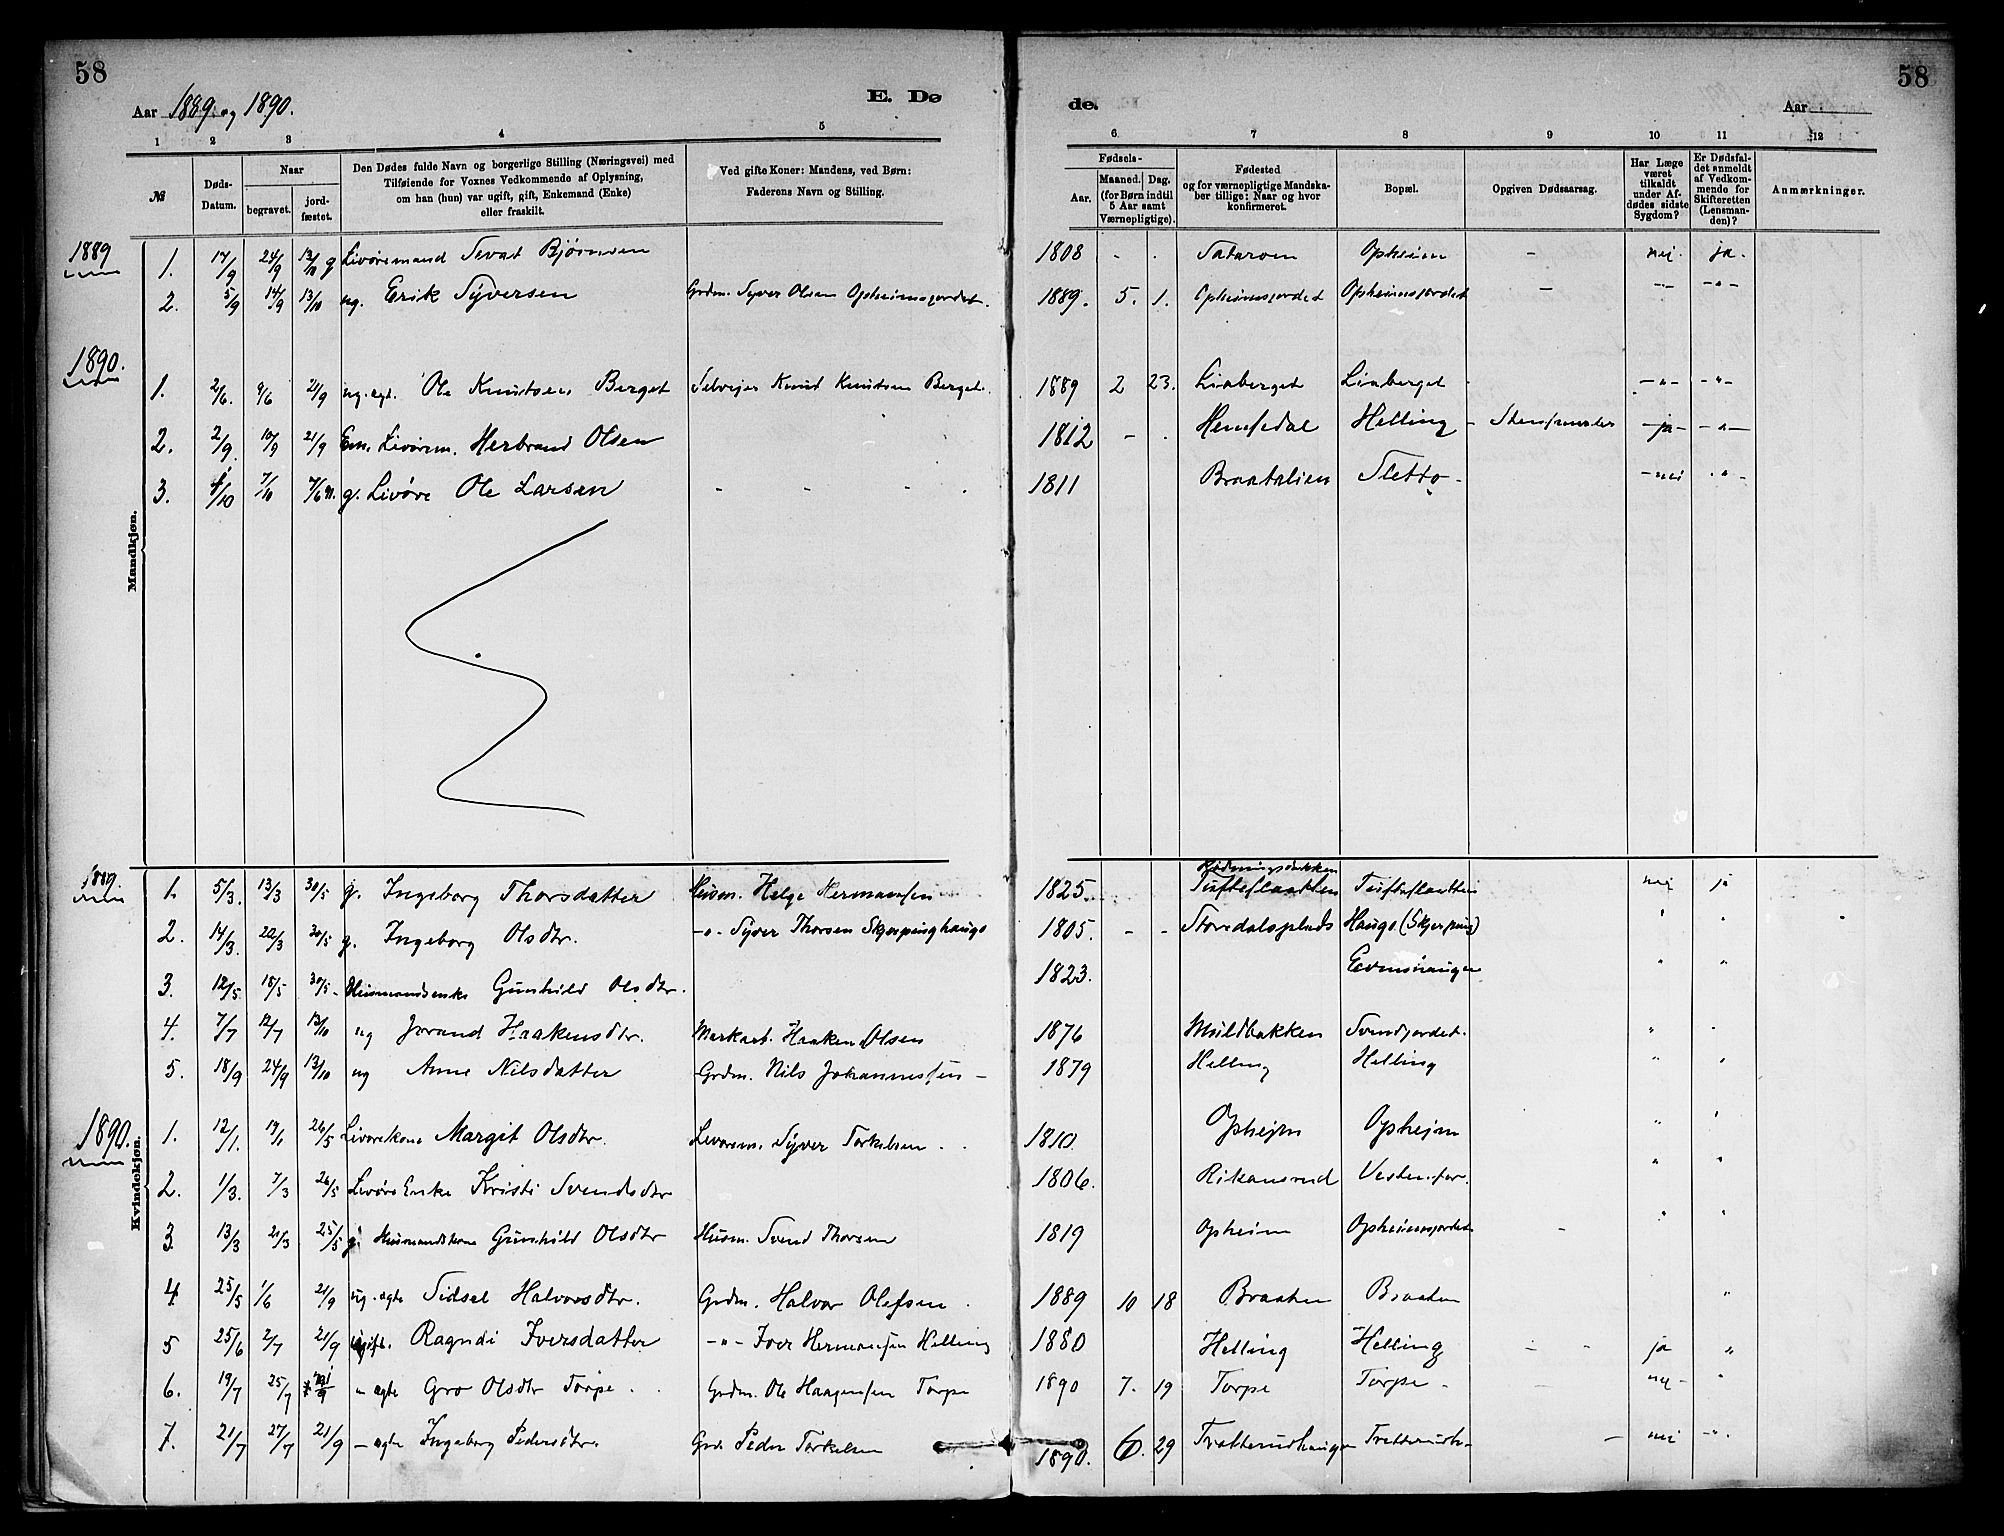 58
58
Aar 1889 og 1890.
E. Dø
de.
Aar
1 2 3 4 5
6. 7 8 9 10 11 12
№
Døds-Datum.
Naar
begravet.
jordfæstet.
Den Dødes fulde Navn og borgerlige Stilling (Næringsvei) med
Tilføiende for Voxnes Vedkommende af Oplysning,
om han (hun) var ugift, gift, Enkemand (Enke)
eller fraskilt.
Ved gifte Koner: Mandens, ved Børn:
Faderens Navn og Stilling.
Fødsels-
Aar.
Maaned. Dag.
(for Børn indtil
5 Aar samt
Værnepligtige).
Fødested
og for værnepligtige Mandska-
ber tillige: Naar og hvor
konfirmeret.
Bopæl.
Opgiven Dødsaarsag.
Har Læge
været
tilkaldt
under Af-
dødes sidste
Sygdom?
Er Dødsfal-
det anmeldt
af Vedkom-
mende for
Skifteretten
(Lensman-
den)?
Anmærkninger.
Mandkjøn.
1889
1. 17/9 24/9 13/10 g Livøremand Sevat Bjørnsen 1808 - . Sataroen Opheim - nei. ja.
2. 5/9 14/9 13/10 ug. Erik Syversen Grdm. Syver Olsen Opheimsjordet. 1889. 5. 1. Opheimsjordet Opheimsjordet - -"- -"-
1890.
1. 2/6. 9/6 21/9 ug. ægt. Ole Knudsen Berget Selveier Knud Knudsen Berget. 1889 2 23. Liaberget Liaberget -"- -"-
2. 2/9. 10/9 21/9 Em. Livørem. Herbrand Olsen 1812 - . Hemsedal Helling - -ja- -"-
3. 1/10 7/10 7/6 91. g. Livøre Ole Larsen - - - . 1811 Braatalien Sletto - -nei -"-
Kvindekjøn.
1889.
1. 5/3. 13/3 30/5 g. Ingeborg Thorsdatter Husm. Helge Hermansen 1825. Tufteslaatten Tufteslaatten nei ja
2. 14/3. 22/3 30/5 g. Ingeborg Olsdtr. -"- Syver Thorsen Skjerpinghaugo 1805. - - Storedalsplads Haugo (Skjerping) " "
3. 12/5. 18/5 30/5 - Husmandsenke Gunhild Olsdtr. 1823. " "
4. 7/7 12/7 13/10 ug Jorand Haakensdtr. Haaken Olsen 1876 Muldbakken Svendjordet. "
5. 18/9 24/9 13/10 ug Anne Nilsdatter Grdm. Nils Johannessen - 1879 Helling Helling " "
1890.
1. 12/1. 19/1 26/5 Livørekone Margit Olsdtr. Livørem. Syver Torkelsen . . 1810. Opheim Opheim " "
2. 1/3. 7/3 26/5 Livøre Enke Kristi Svendsdtr 1806. Rikansrud " "
3 13/3 21/3 25/5 g. Husmandskone Gunhild Olsdtr Husm. Svend Thorsen 1819 Opheim Opheimsjordet - " "
4. 25/5 1/6 21/9 ug. ægte Sidsel Halvorsdtr. Grdm. Halvor Olefsen . 1889 10 18 Braaten Braaten "
5 25/6 2/7 21/9 ugift. Ragndi Iversdatter -"- Iver Hermansen Helling 1880 Helling Helling - - ja "
6. 19/7 25/7 21/9 - ægte Gro Olsdtr Torpe . . Grdm. Ole Haagensen Torpe 1890 7. 19 Torpe Torpe - nei - "
7. 21/7 27/7 21/9 - ægte Ingeborg Pedersdtr. Grd. Peder Torkelsen 1890. 6. 29 Tretterudhaugen - nei -"-